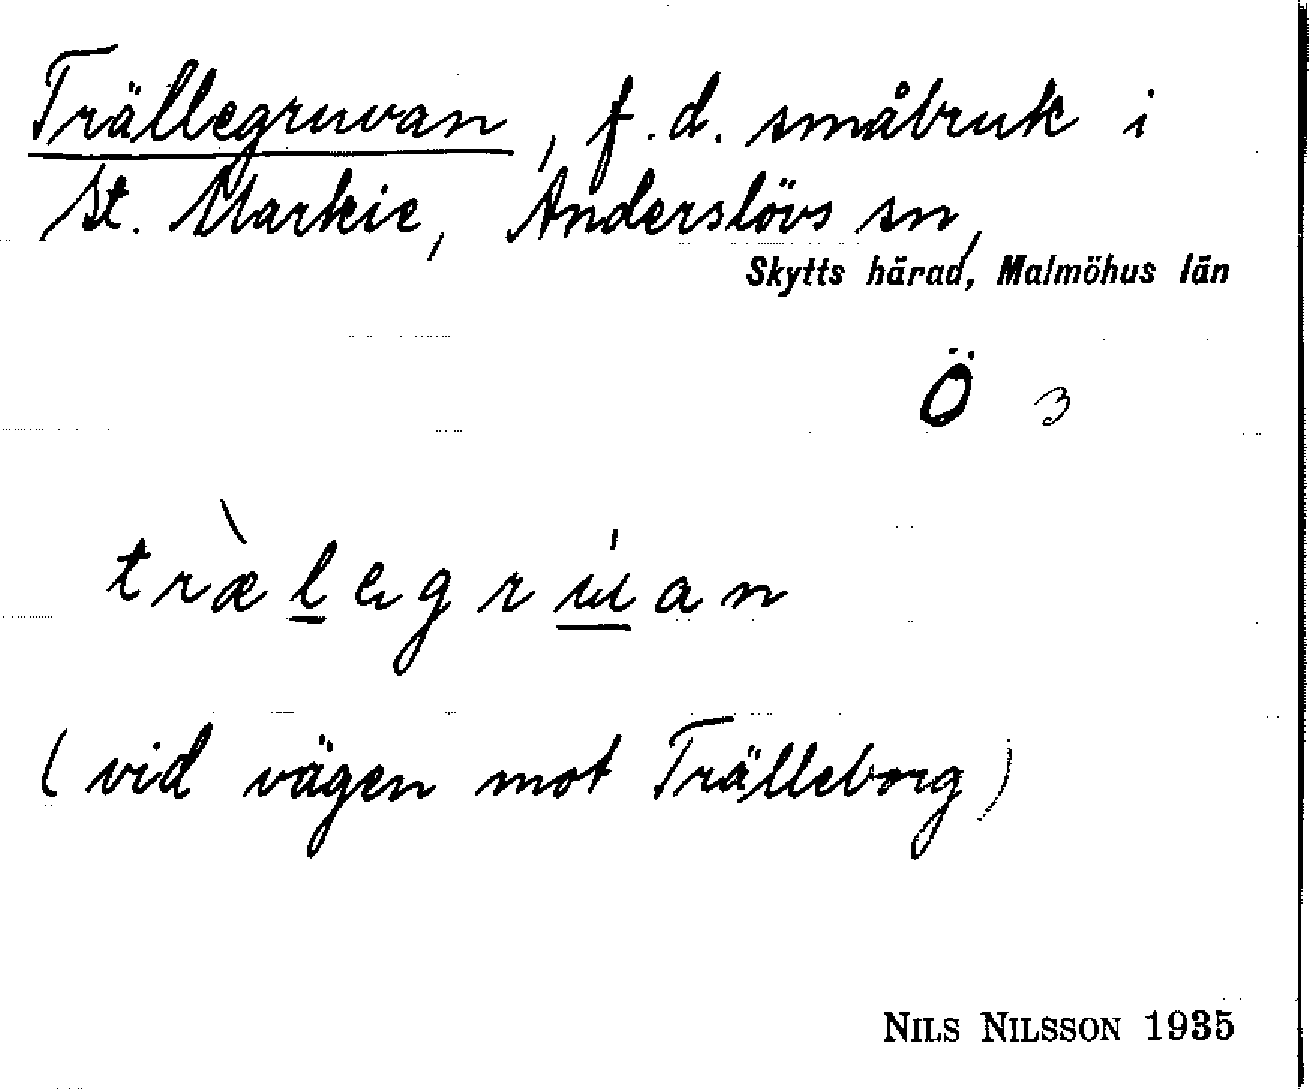 Trällegruvan, f.d. småbruk i
St. Markie, Anderslövs sn,
Skytts härad, Malmöhus län
Ö 3
træ̀legrúan
(vid vägen mot Trälleborg)
NILS NILSSON 1935